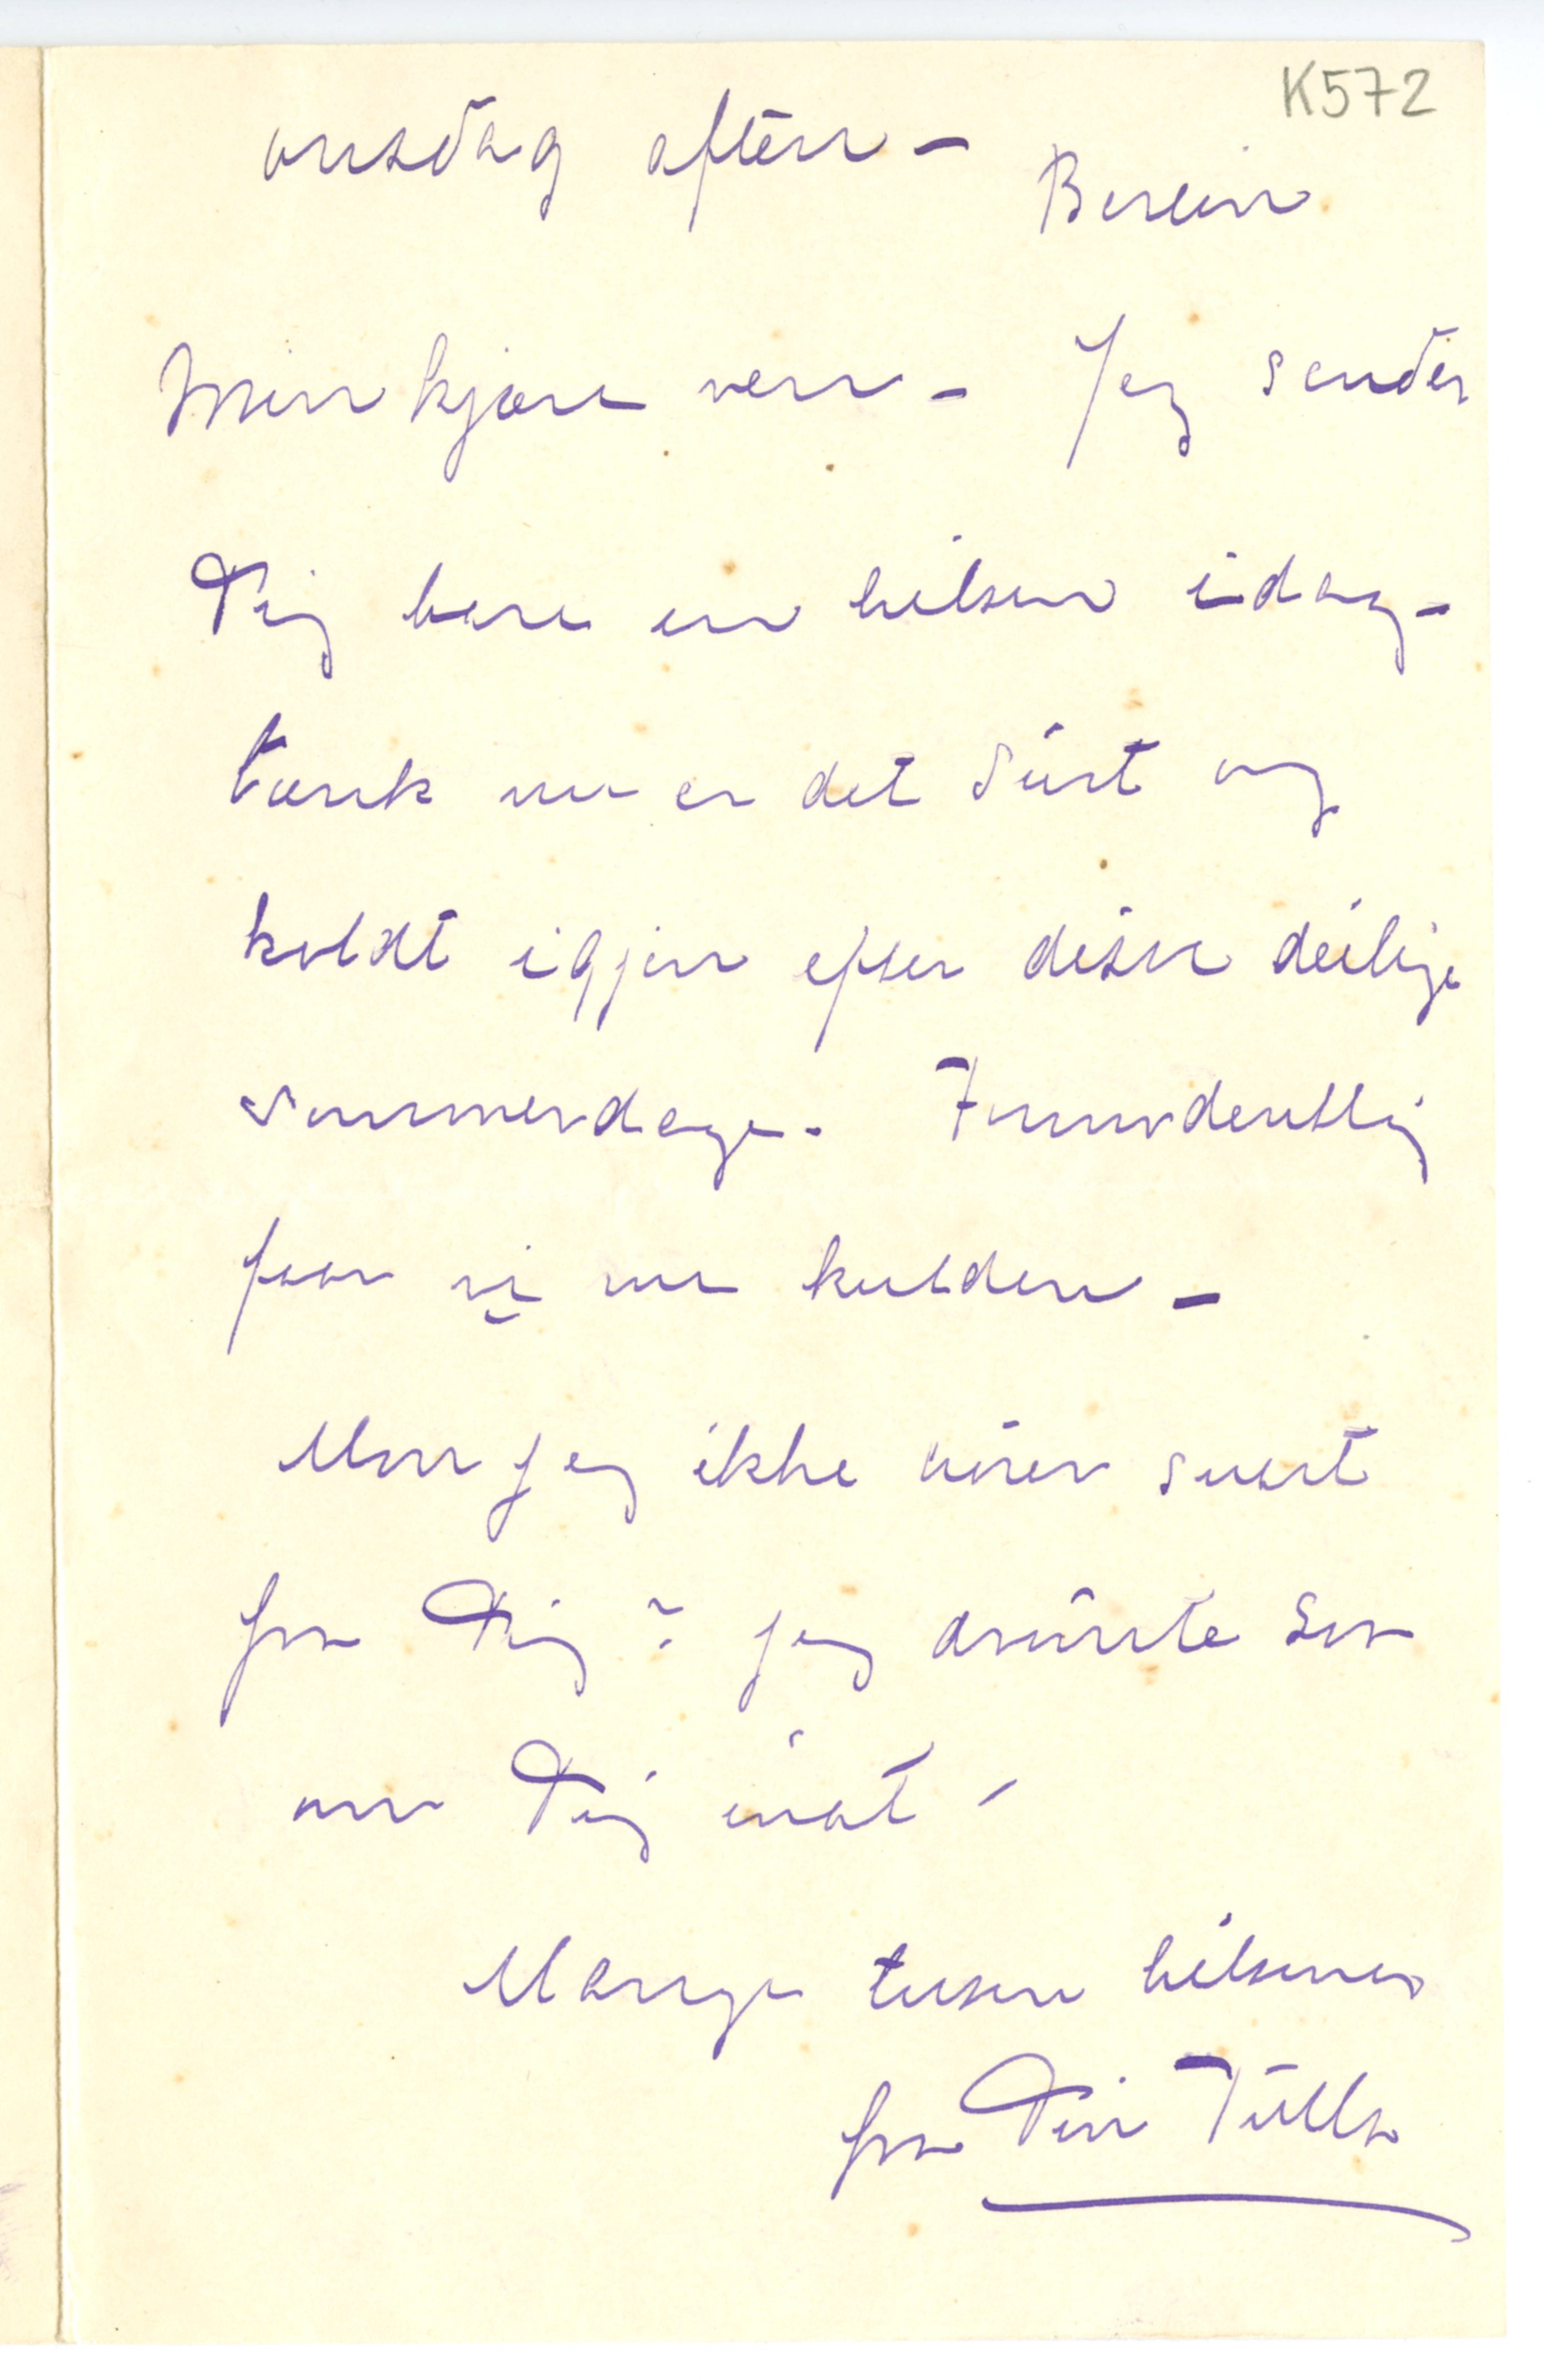 K572
onsdag aften –
Berlin
Min kjære ven – Jeg sender
Dig bare en hilsen idag –
tænk nu er det surt og
koldt igjen efter disse deilige
sommerdage. Formodentlig
faar vi nu kulden –
Mon jeg ikke hører snart
fra Dig? jeg drømte saa
om Dig inat –
Mange tusen hilsener
fra Din Tulla